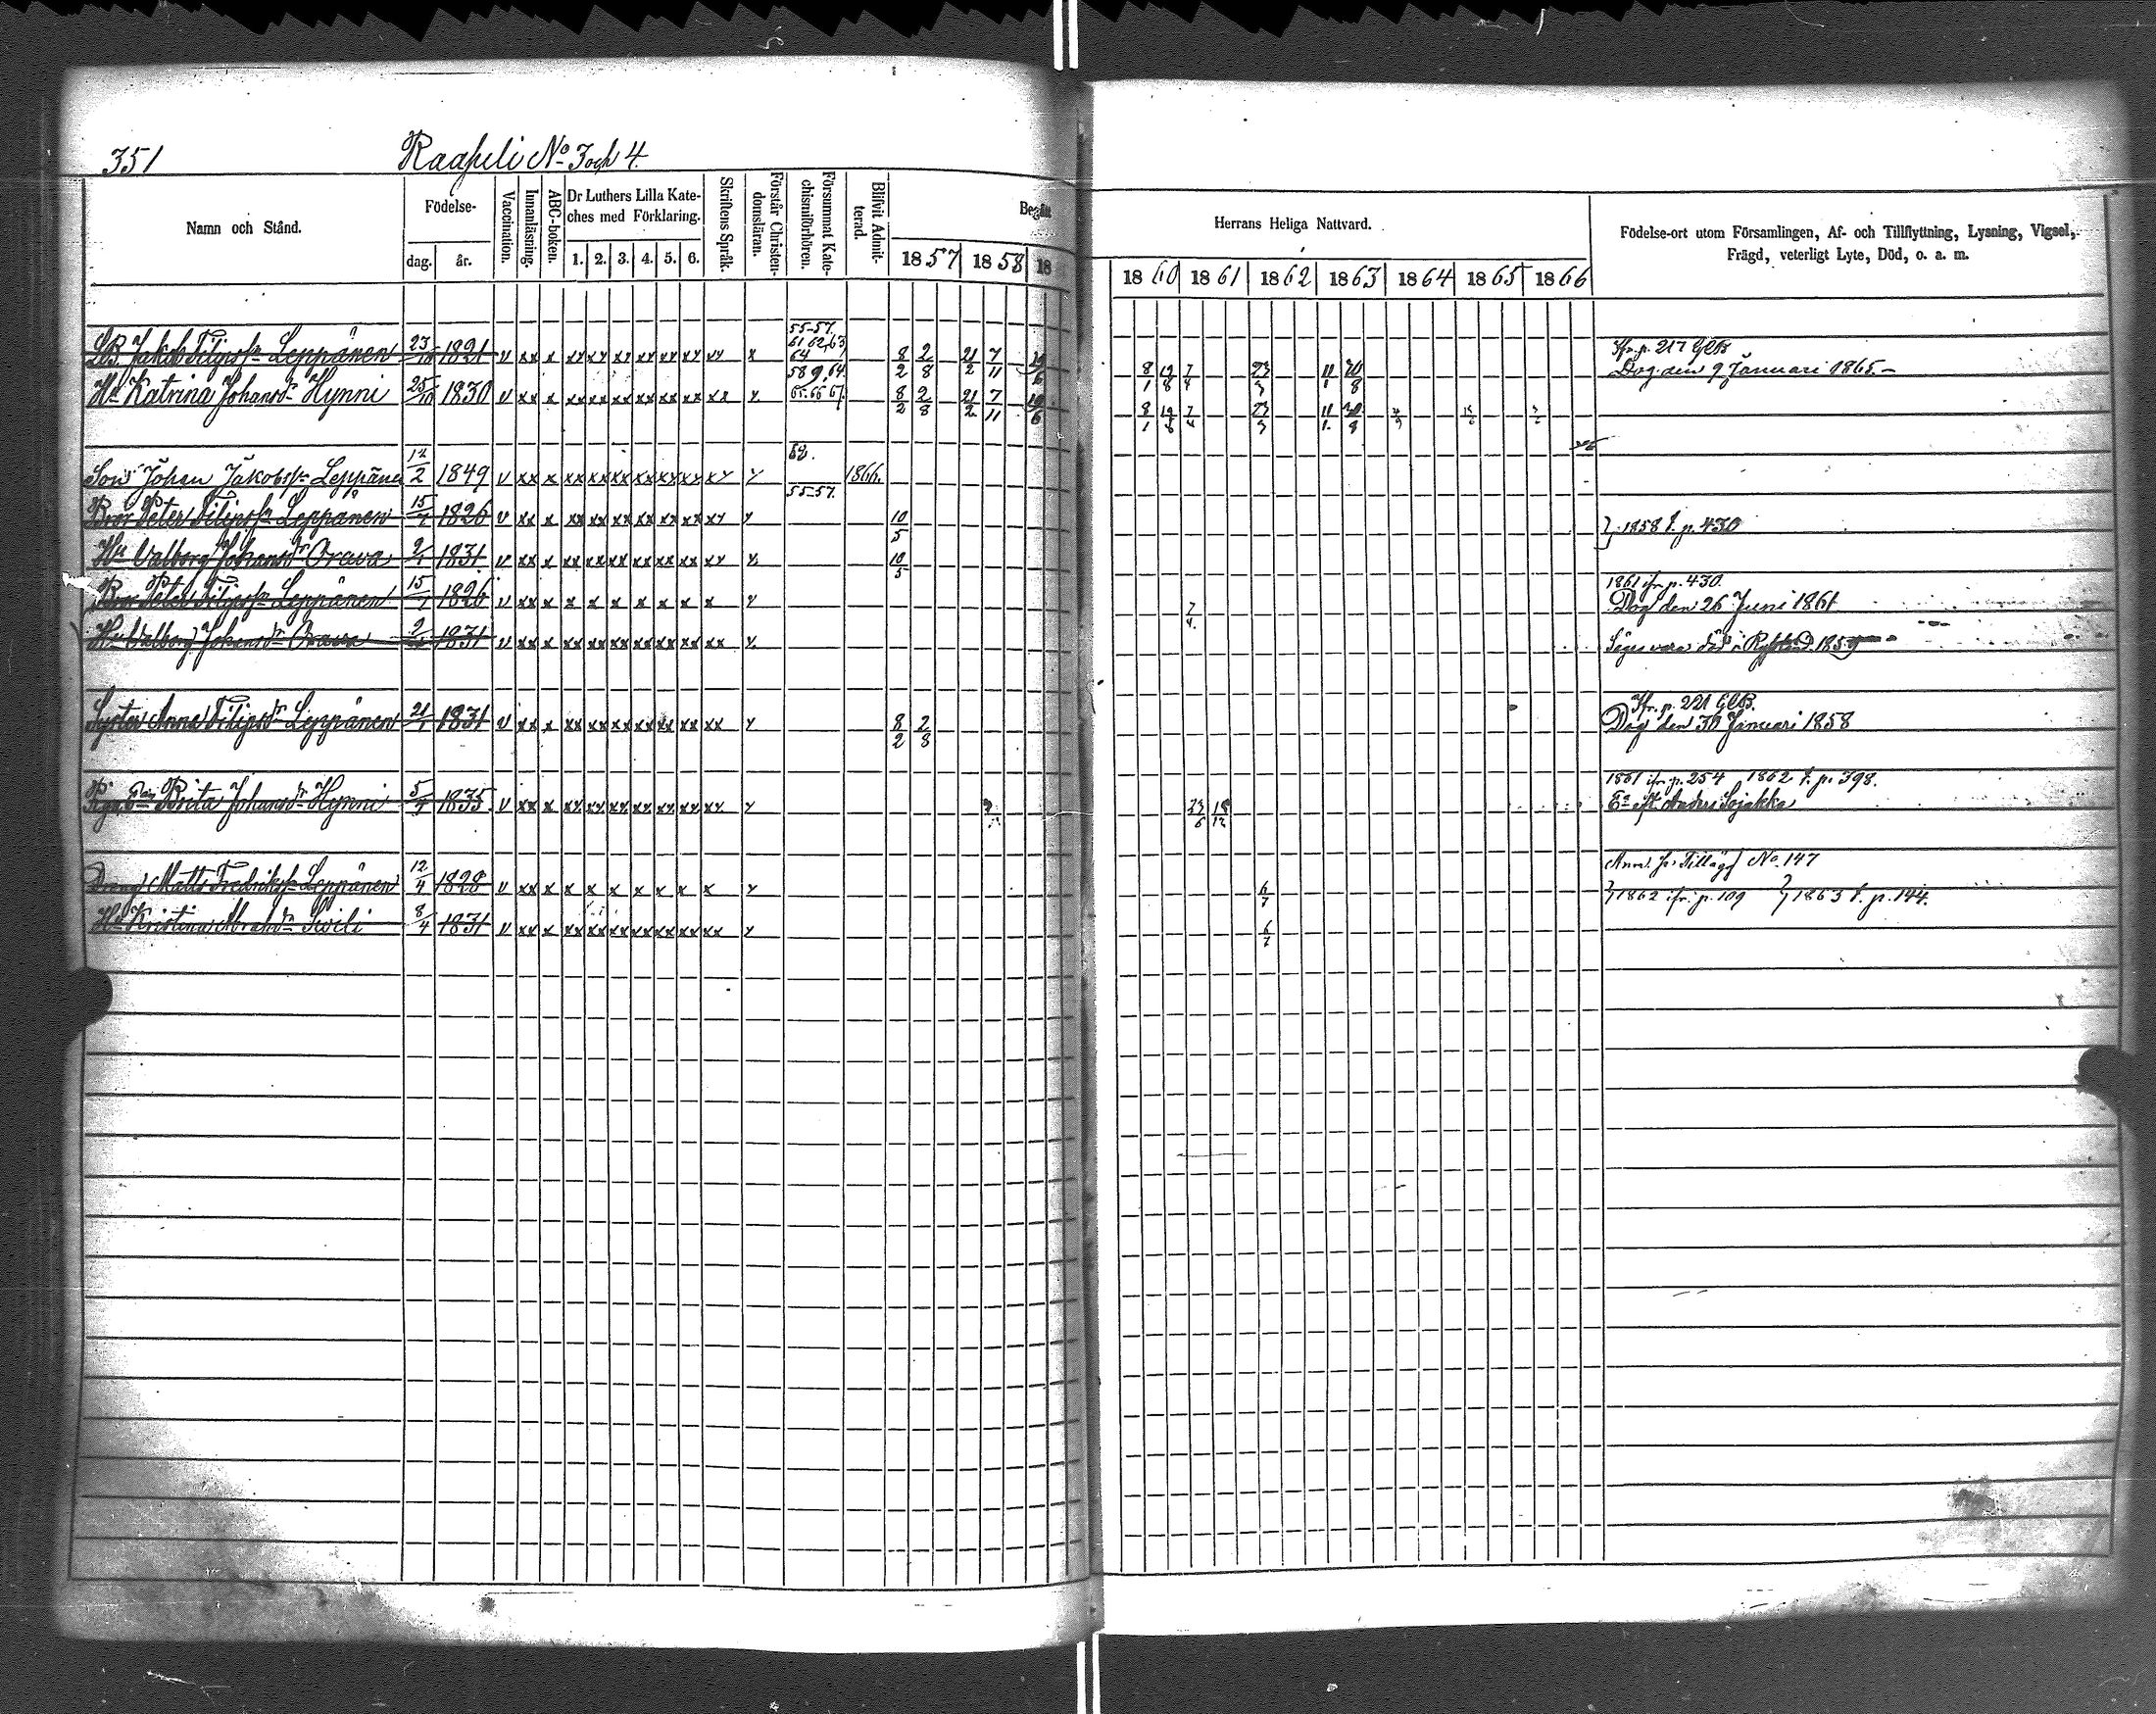 351 Raapeli No 3 och 4.
Namn och Stånd. Födelse- dag. år. Vaccination. Innanläsning. ABC-boken. Dr Luthers Lilla Kateches med Förklaring. 1. 2. 3. 4. 5. 6. Skriftens Språk. Förstår Christendomsläran. Försummat Katechismiförhören. Blifvit Admitterad. Begått 1857 1858 18
Herrans Heliga Nattvard. 1860 1861 1862 1863 1864 1865 1866
Födelse-ort utom Församlingen, Af- och Tillflyttning, Lysning, Vigsel,
Frägd, veterligt Lyte, Död, o. a. m.
55-57.
61 62, 63
LB. Jakob Filipss:n Leppänen 23/10 1821 v xx x xx xx xx xx xx xx xx x 64 8/2 2/8 21/2 7/11 8/1 12/8 7/4 23/3 11/1 30/8 Ifr. p. 217 GlB
Dog den 9 Januari 1865.
58 9, 64.
Hu Katrina Johansd:r Hynni 25/10 1830 v xx x xx xx xx xx xx xx xx x 65-66 67. 8/2 2/8 21/2 7/11 8/1 12/8 7/4 23/3 11/1 30/8
Son Johan Jakobss:n Leppänen 12/2 1849 v xx x xx xx xx xx xx xx xx x 1866.
55-57.
Bror Peter Filipss:n Leppänen 15/7 1826 v xx x xx xx xx xx xx xx xx x 10/5 1858 t. p. 430
Hu Valborg Johansd:r Orava 2/4 1831 v xx x xx xx xx xx xx xx xx x 10/5
Bror Peter Filipss:n Leppänen 15/7 1826 v xx x x x x x x x x x 7/4 1861 ifr. p. 430.
Dog den 26 Juni 1861
Hu Valborg Johansd:r Orava 2/4 1831 v xx x xx xx xx xx xx xx xx x Säges vara död i Ryssland 1859
Syster Anna Filipsd:r Leppänen 21/1 1831 v xx x xx xx xx xx xx xx xx x 8/2 2/8 Ifr. p. 221 GlB.
Dog den 30 Januari 1858
Piga Brita Johansd:r Hynni 5/4 1835 v xx x xx xx xx xx xx xx xx x 23/6 18/12 1861 ifr. p. 254 1862 t. p. 398.
Ea eft. Anders Sojakka
Dreng Matts Fredrikss:n Leppänen 12/4 1828 v xx x x x x x x x x x 6/7 Anm. se Tillägg No. 147
1862 ifr. p. 109 1863 t. p. 144.
Hu Kristina Abrahd:r Sivili 8/4 1831 v xx x xx xx xx xx xx xx xx x 6/7